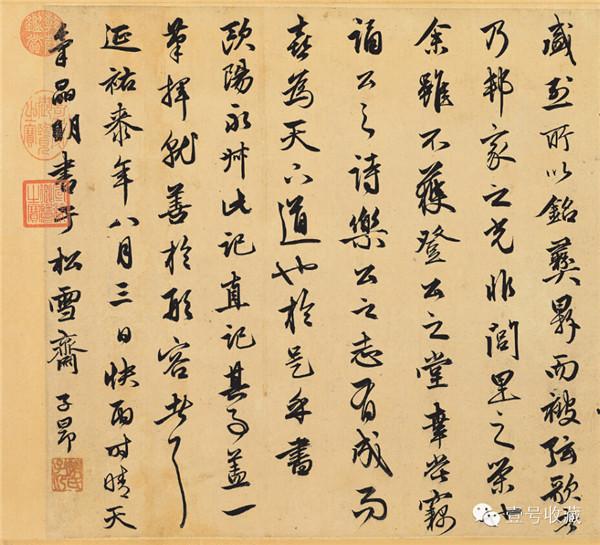 盛烈所以銘彝鼎而被弦歌者
乃邦家之光非閭里之榮也
余雖不獲登公之堂幸嘗竊
誦公之詩樂公之志有成而
喜為天下道也於是乎書
歐陽永叔此記直記其事蓋一
筆揮就善於形容者也
延祐桼年八月三日快雨時晴天
氣晶明書于松雪齋 子昂
趙氏子昂
壹号收藏